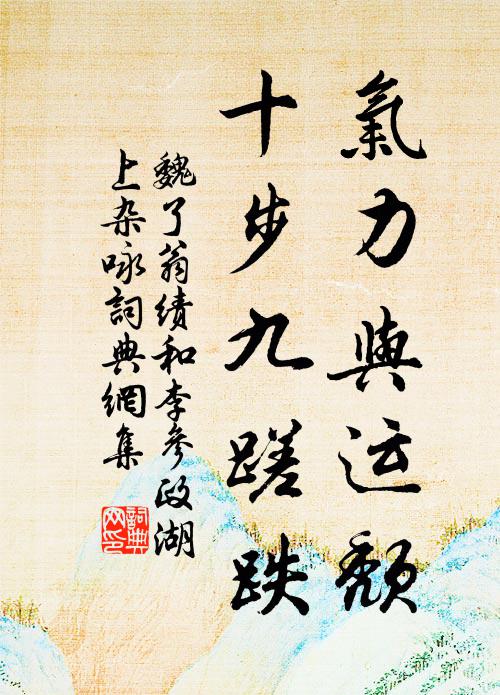 氣力與运颓
十步九蹉跌
魏了翁績和李參政湖
上杂咏詞典網集
詞典网印